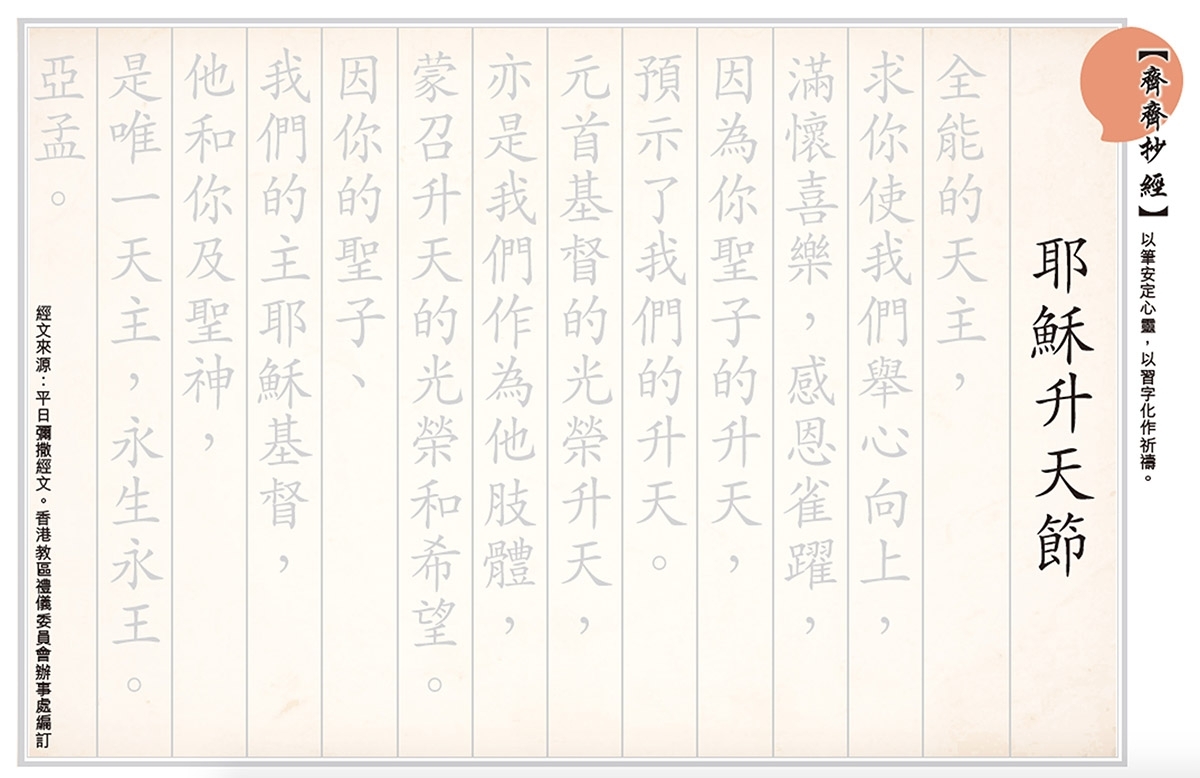 【齊齊抄經】以筆安定心靈，以習字化作祈禱。
耶穌升天節
全能的天主，
求你使我們舉心向上，
滿懷喜樂，感恩雀躍，
因為你聖子的升天，
預示了我們的升天。
元首基督的光榮升天，
亦是我們作為他肢體，
蒙召升天的光榮和希望。
因你的聖子、
我們的主耶穌基督，
他和你及聖神，
是唯一天主，永生永王。
亞孟。
經文來源：平日彌撒經文。香港教區禮儀委員會辦事處編訂